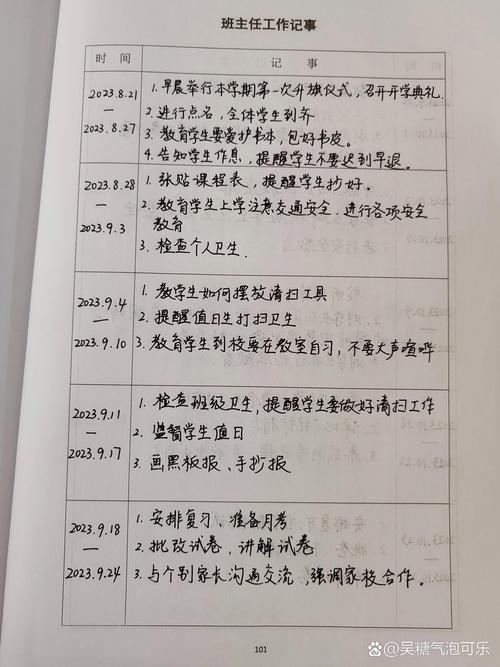 班主任工作记事
时 间 记 事
2023.8.21
—
2023.8.27
1. 早晨举行本学期第一次升旗仪式，召开开学典礼.
2. 进行点名，全体学生到齐
3. 教育学生要爱护书本，包好书皮。
4. 告知学生作息，提醒学生不要迟到早退。
2023.8.28
—
2023.9.3
1. 张贴课程表，提醒学生抄好。
2. 教育学生上学注意交通安全，进行各项安全
教育
3. 检查个人卫生.
2023.9.4
—
2023.9.10
1. 教学生如何摆放清扫工具
2. 提醒值日生打扫卫生
3. 教育学生到校要在教室自习，不要大声喧哗
2023.9.11
—
2023.9.17
1. 检查班级卫生，提醒学生要做好清扫工作
2. 监督学生值日
3. 画黑板报、手抄报
2023.9.18
—
2023.9.24
1. 安排复习、准备月考
2. 批改试卷，讲解试卷
3. 与个别家长沟通交流，强调家校合作。
101
@吴糖气泡可乐